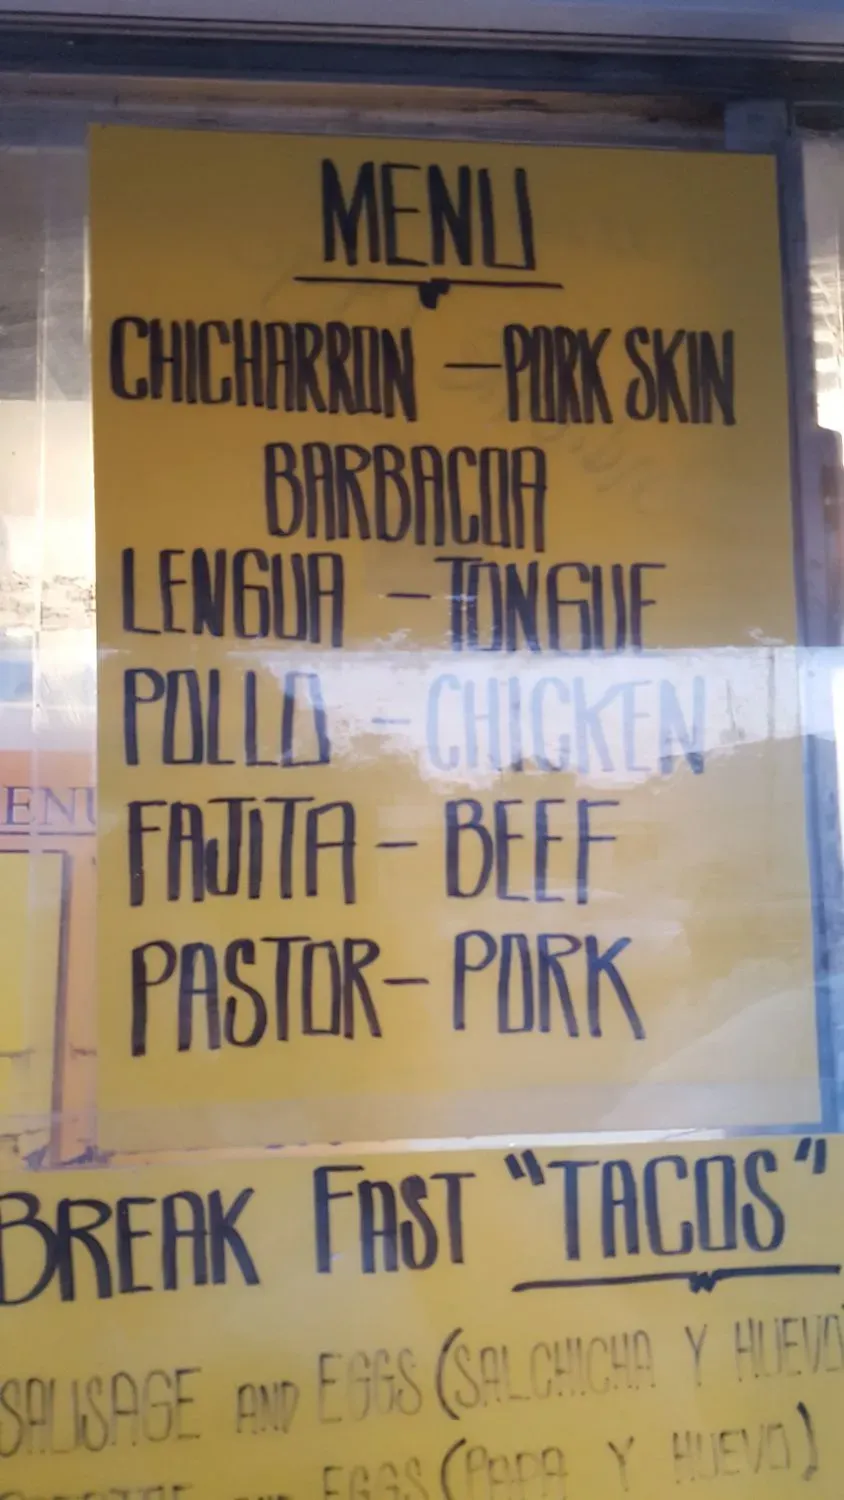 MENU
CHICHARRON — PORK SKIN
BARBACOA
LENGUA - TONGUE
POLLO - CHICKEN
FAJITA - BEEF
PASTOR - PORK
BREAK FAST "TACOS"
SAUSAGE AND EGGS (SALCHICHA Y HUEVO
EGGS (PAPA Y HUEVO)